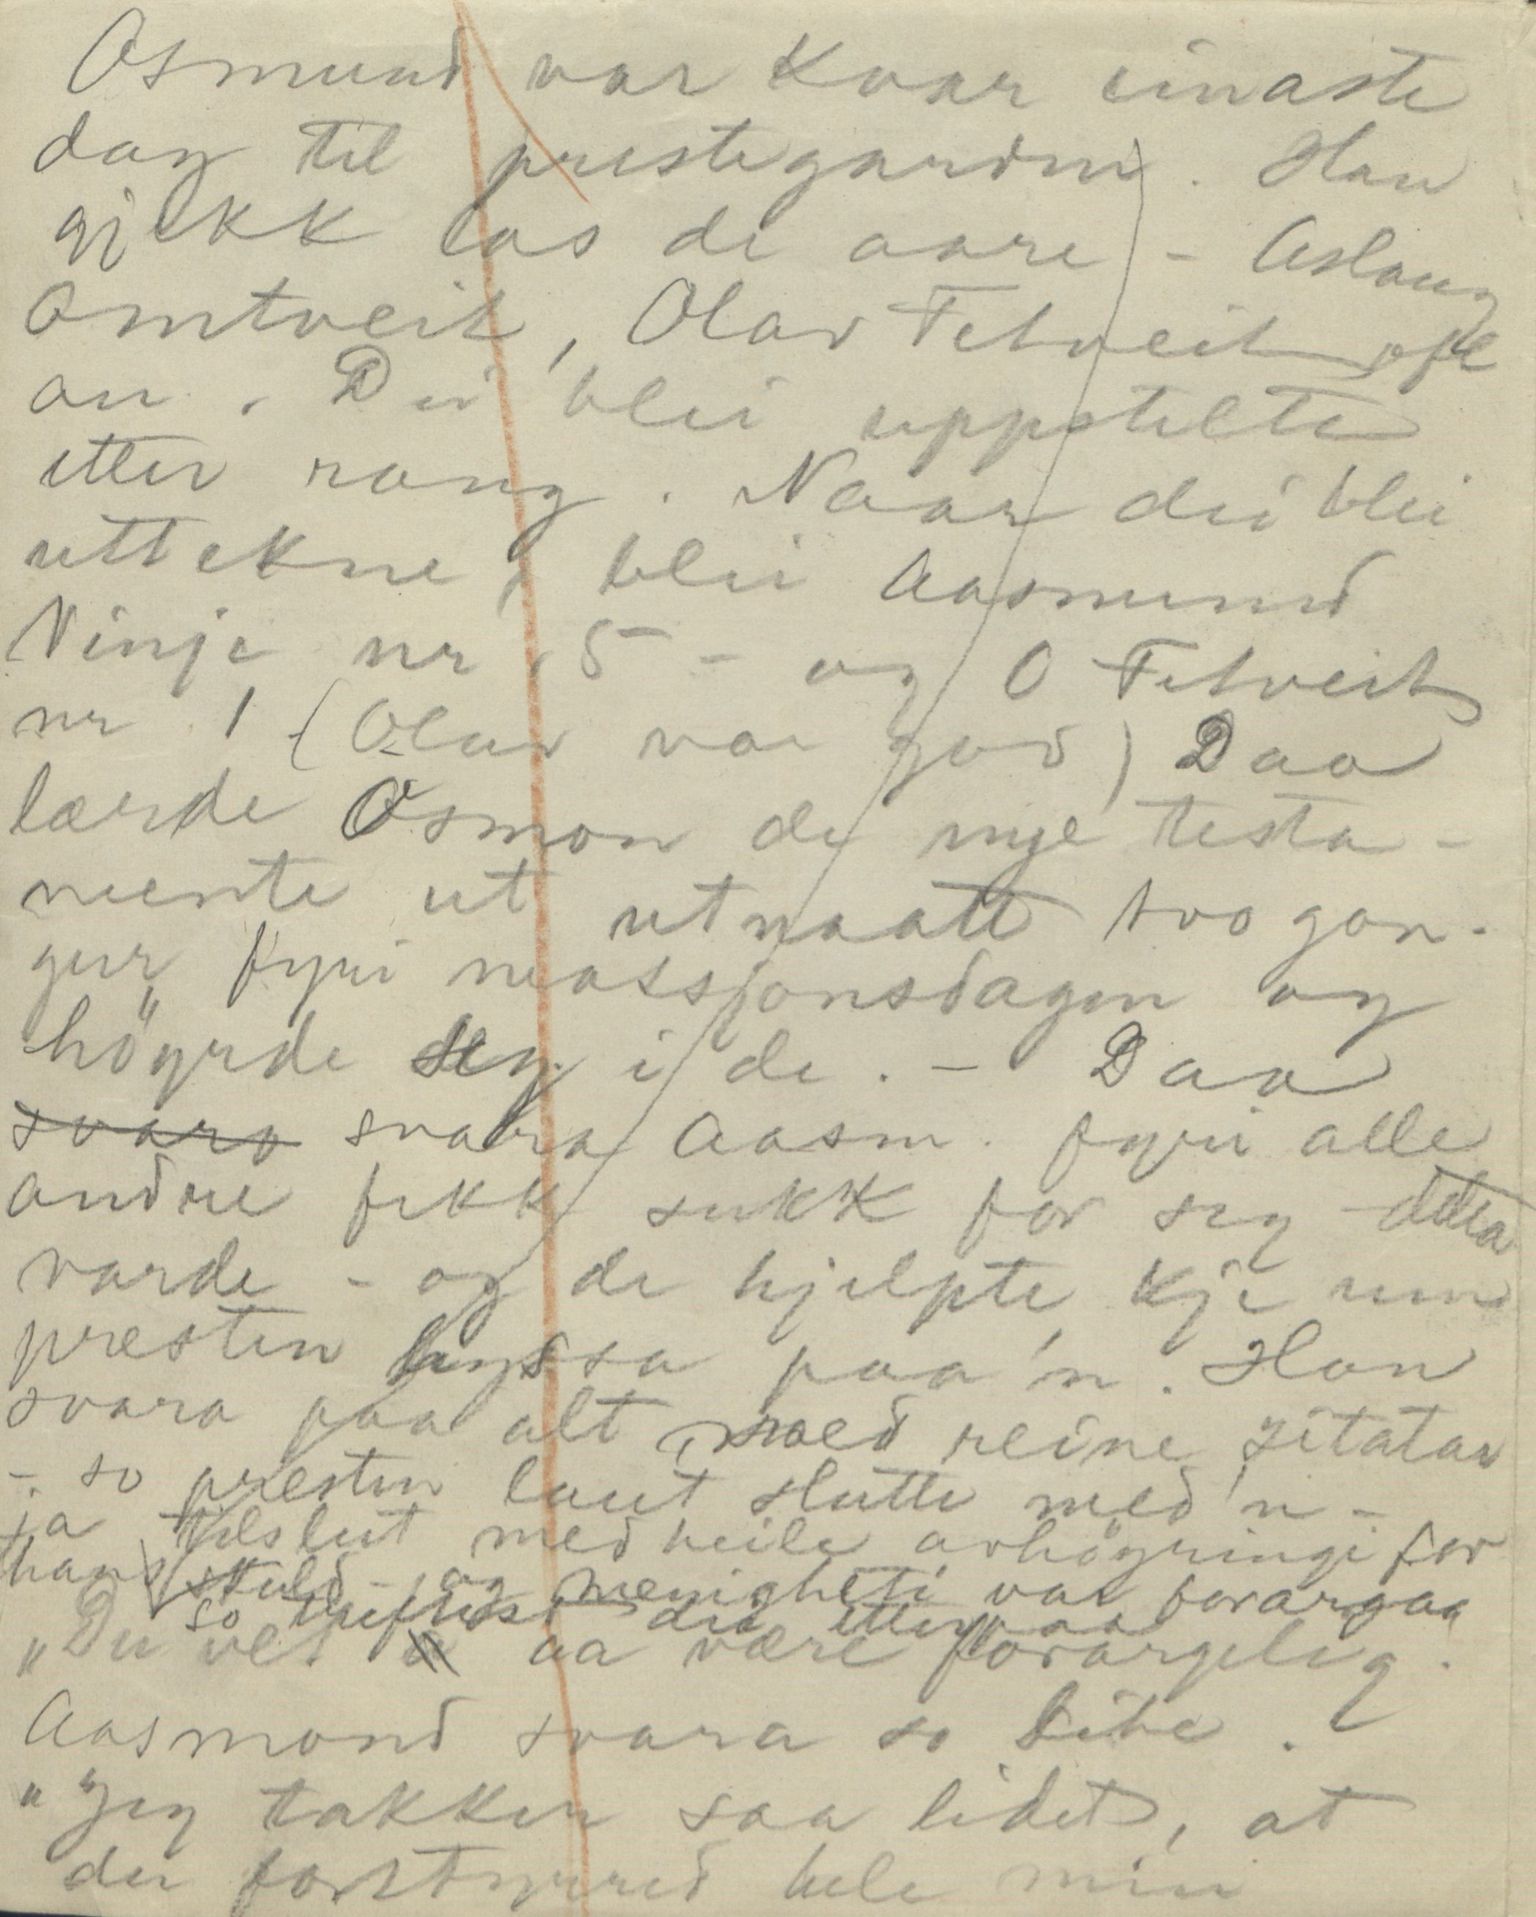 Osmund var kvar einaste
dag til prestegarden. Han
gjekk las de aare - Aslaug
Omtveit, Olav Fetveit ofl
an. Dei blei uppstelte
etter rang. Naar dei blei
uttekne, blei Aasmund
Vinje nr 5 - og O Fetveit
nr 1 (Olav var god) Daa
lærde Osmon de nye testa-
mente ut utnaatt tvo gon-
gur fyri messjonsdagen og
höyrde seg i de. - Daa
svara svara Aasm. fyri alle
andre fekk sukk for seg
varde - og de hjelpte kje um
presten hyssa paa'n. Han
svara paa alt med reine zitatar
- so presten laut slutte med'n -
ja tilslut med heile avhöyringi for
hans skuld - og menigheti var forargaa
so treftest dei etterpaa
"Du vel aa være forargelig".
Aasmond svara so
"Jeg takker saa lidet, at
der forstyrred hele min